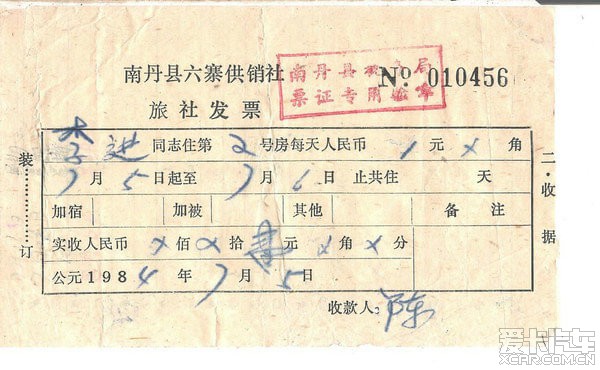 南丹县六寨供销社
南丹县税务局
票证专用验章
№ 010456
旅社发票
李进同志住第2号房每天人民币1元×角
7月5日起至7月6日止共住 天
加宿 加被 其他 备注
实收人民币×佰×拾壹元×角×分
公元1984年7月5日
收款人:陈
装订
二·收据
爱卡汽车
XCAR.COM.CN